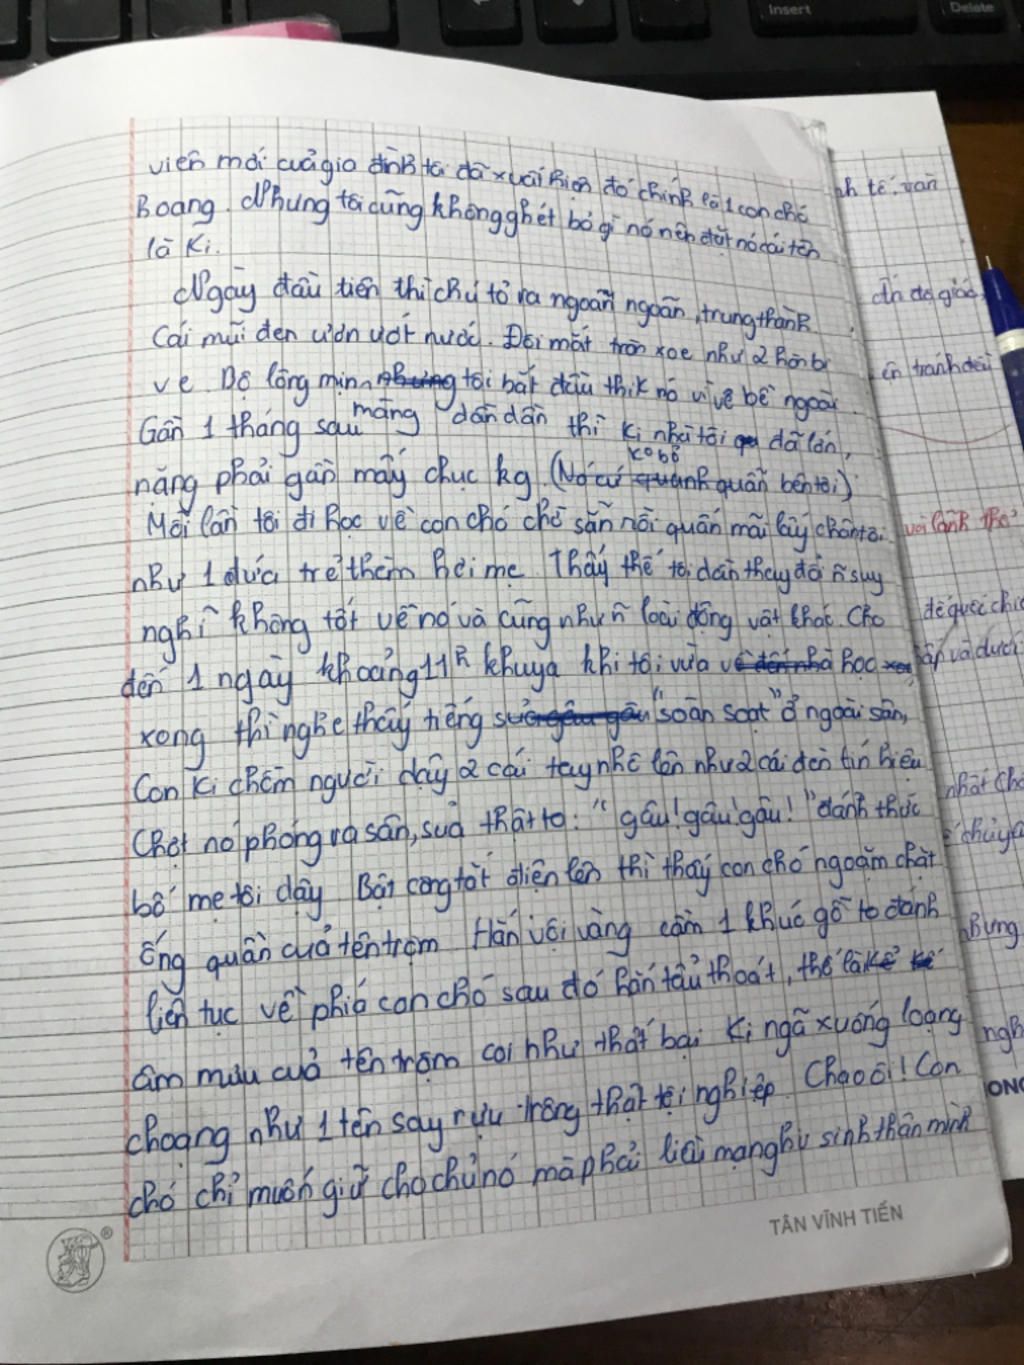 Insert
Delete
viên mới cuả gia đình tôi đã xuất hiện đó chính là 1 con chó
hoang. Nhưng tôi cũng không ghét bỏ gì nó nên đặt nó cái tên
là Ki.
Ngày đầu tiên thì chú tỏ ra ngoan ngoãn, trung thành
Cái mũi đen ươn ướt nước. Đôi mắt tròn xoe như 2 hòn bi
ve Bộ lông mịn nhưng tôi bắt đầu thik nó vì vẻ bề ngoài
Gần 1 tháng sau mang dần dần thì Ki nhà tôi đã lớn,
nặng phải gần mấy chục kg (Nó cứ quanh quẩn bên tôi)
Mỗi lần tôi đi học về con chó chờ sẵn rồi quấn mãi lấy chân tôi
như 1 đứa trẻ thèm hơi mẹ Thấy thế tôi dần thay đổi n~ suy
nghĩ không tốt về nó và cũng như n~ loài động vật khác Cho
đến 1 ngày khoảng 11h khuya khi tôi vừa về đến nhà học
xong thì nghe thấy tiếng sủa gâu gâu "soàn soạt" ở ngoài sân,
Con Ki chồm người dậy 2 cái tay nhê lên như 2 cái đèn tín hiệu
Chợt nó phóng ra sân, sủa thật to: "gâu! gâu! gâu!" đánh thức
bố mẹ tôi dậy Bật công tắt điện lên thì thấy con chó ngoặm chặt
ống quần cuả tên trộm Hắn vội vàng cầm 1 khúc gỗ to đánh
liên tục về phiá con chó sau đó hắn tẩu thoát, thế là
âm mưu cuả tên trộm coi như thất bại Ki ngã xuống loạng
choạng như 1 tên say rựu trông thật tội nghiệp. Chao ôi! Con
chó chỉ muốn giữ cho chủ nó mà phải liều mạng hi sinh thân mình
TÂN VĨNH TIẾN
®
nh tế, văn
ấn đa giác,
ên tranh
với lãnh thổ
để
ấp và dưới
nhất
Bưng
ngh
ONG